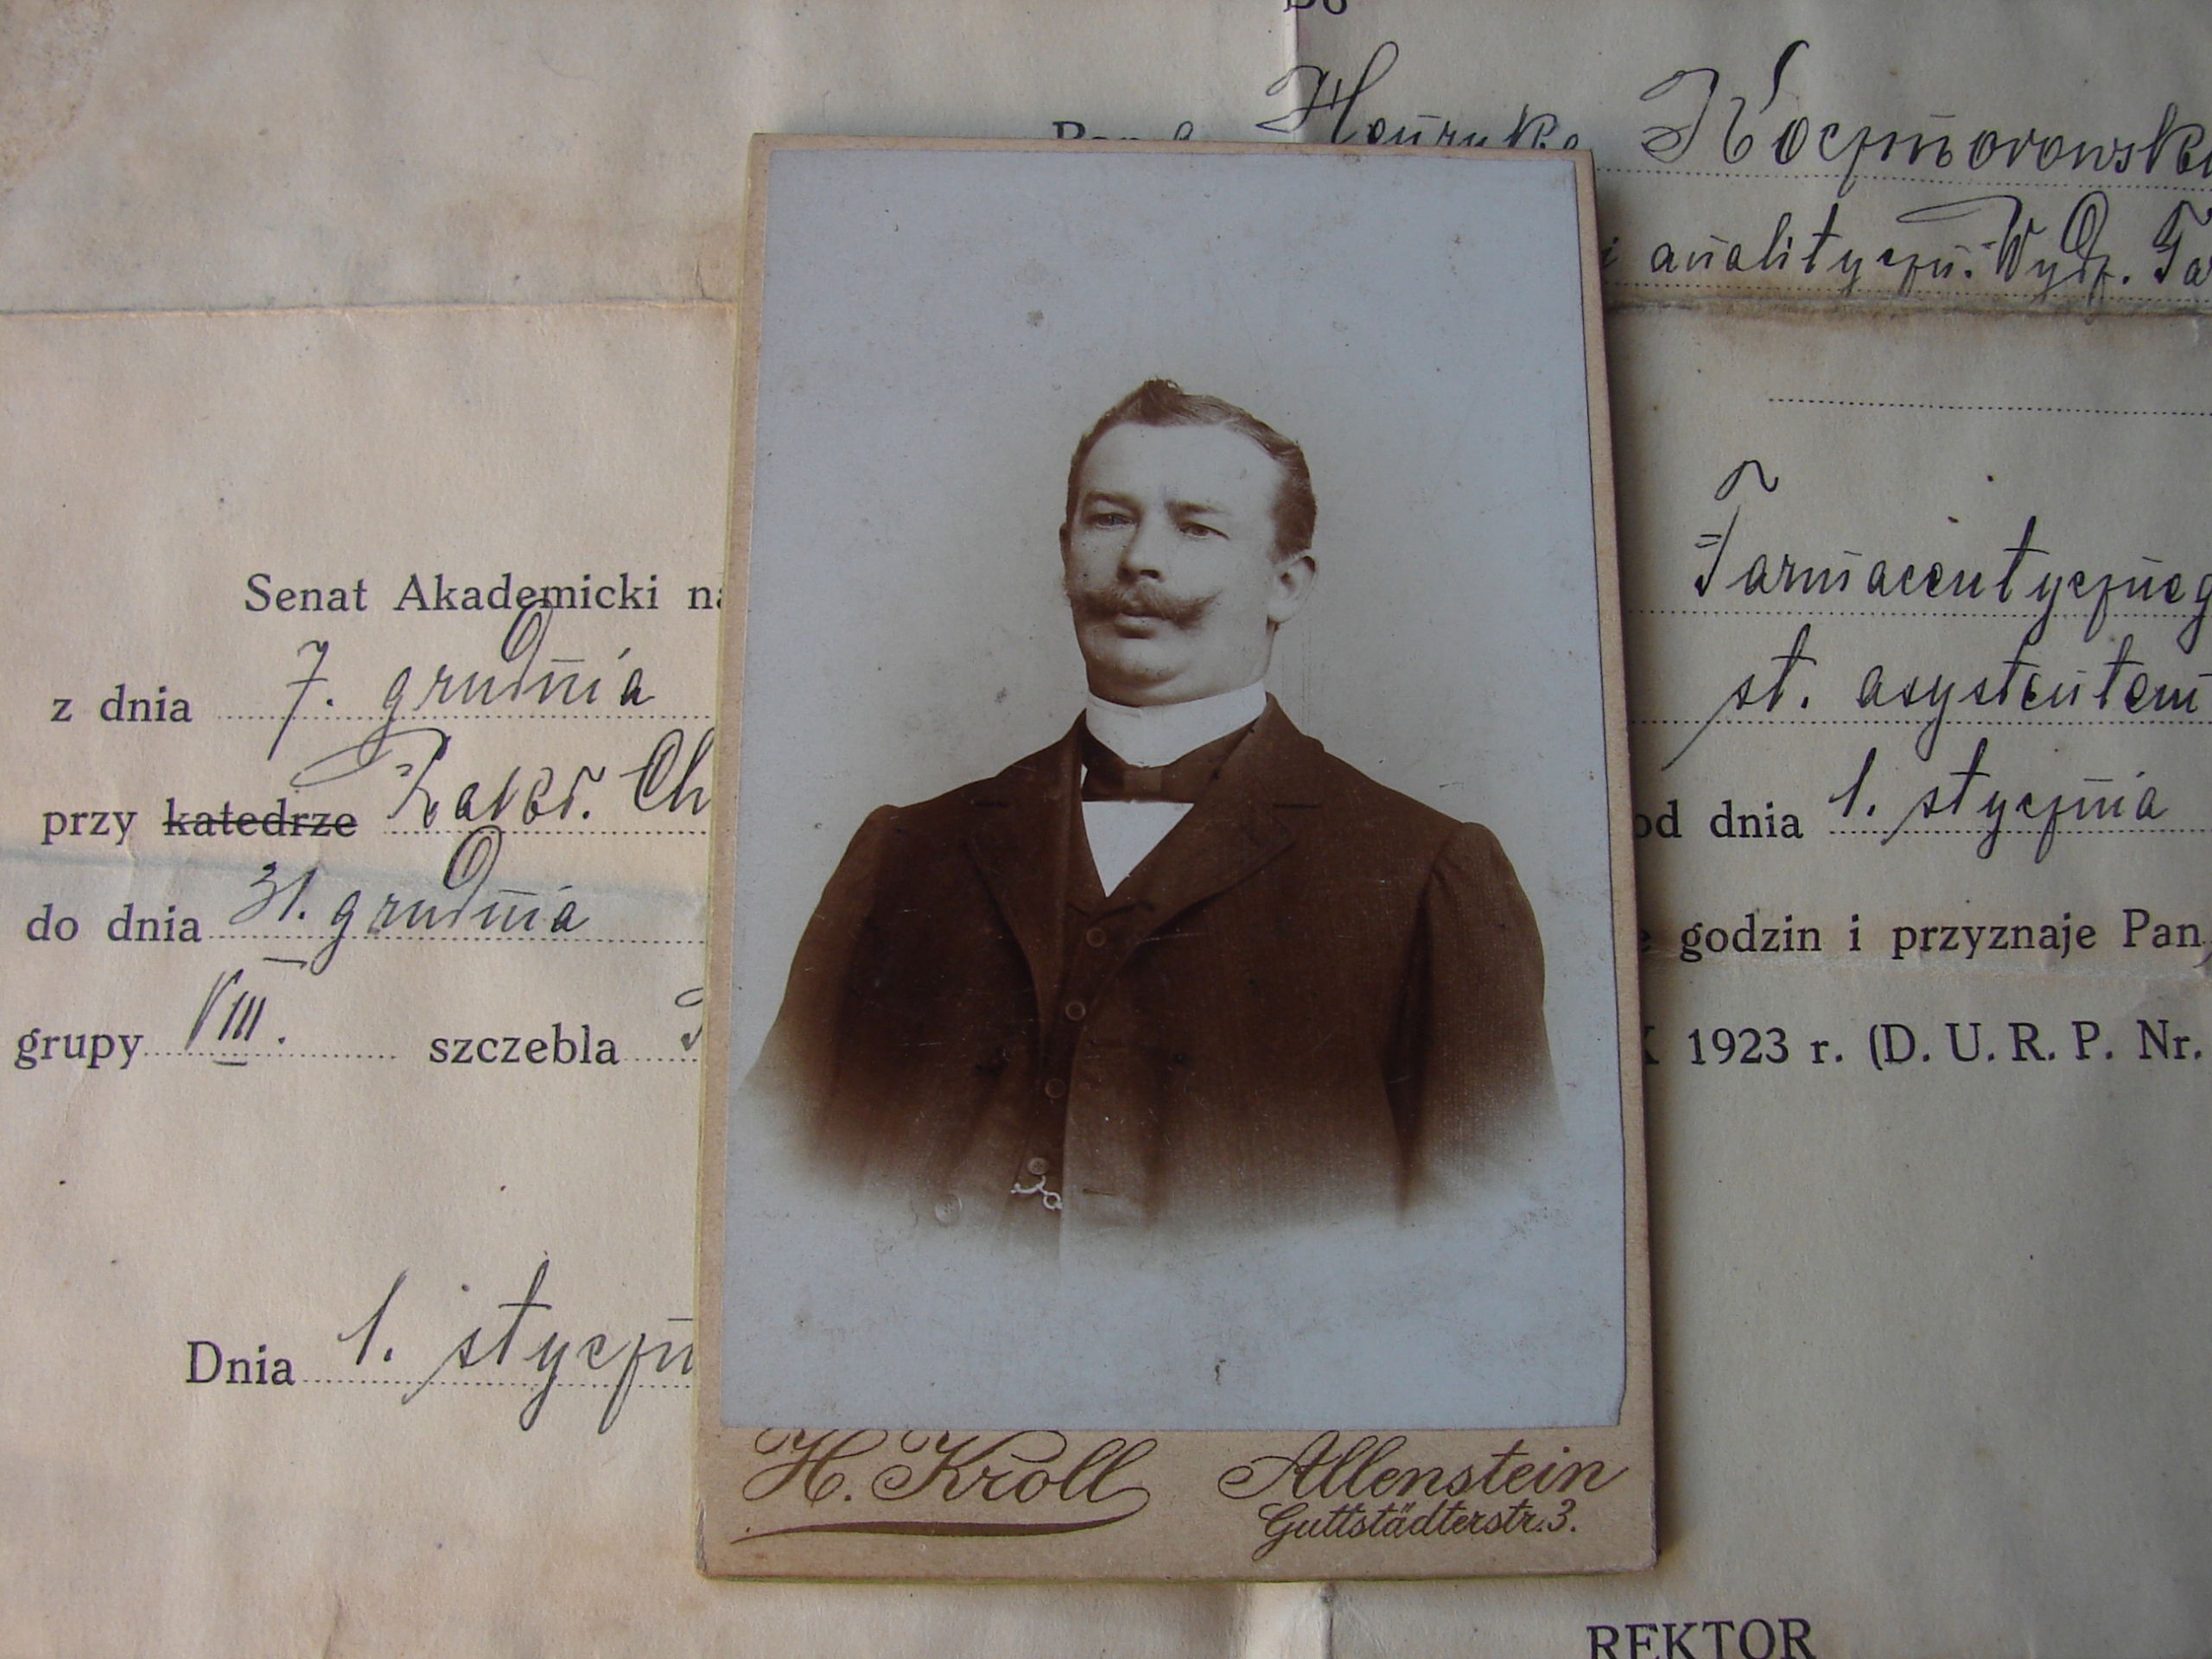 Do
Henryka Kocznorowski
i analityczn. Wydz. Fa
Farmaceutyczneg
Senat Akademicki na
z dnia 7. grudnia st. asystentem
przy katedrze Zakł. Ch od dnia 1. stycznia
do dnia 31. grudnia godzin i przyznaje Pan
grupy VIII. szczebla 1923 r. (D. U. R. P. Nr.
Dnia 1. styczn
H. Kroll Allenstein
Guttstädterstr. 3.
REKTOR